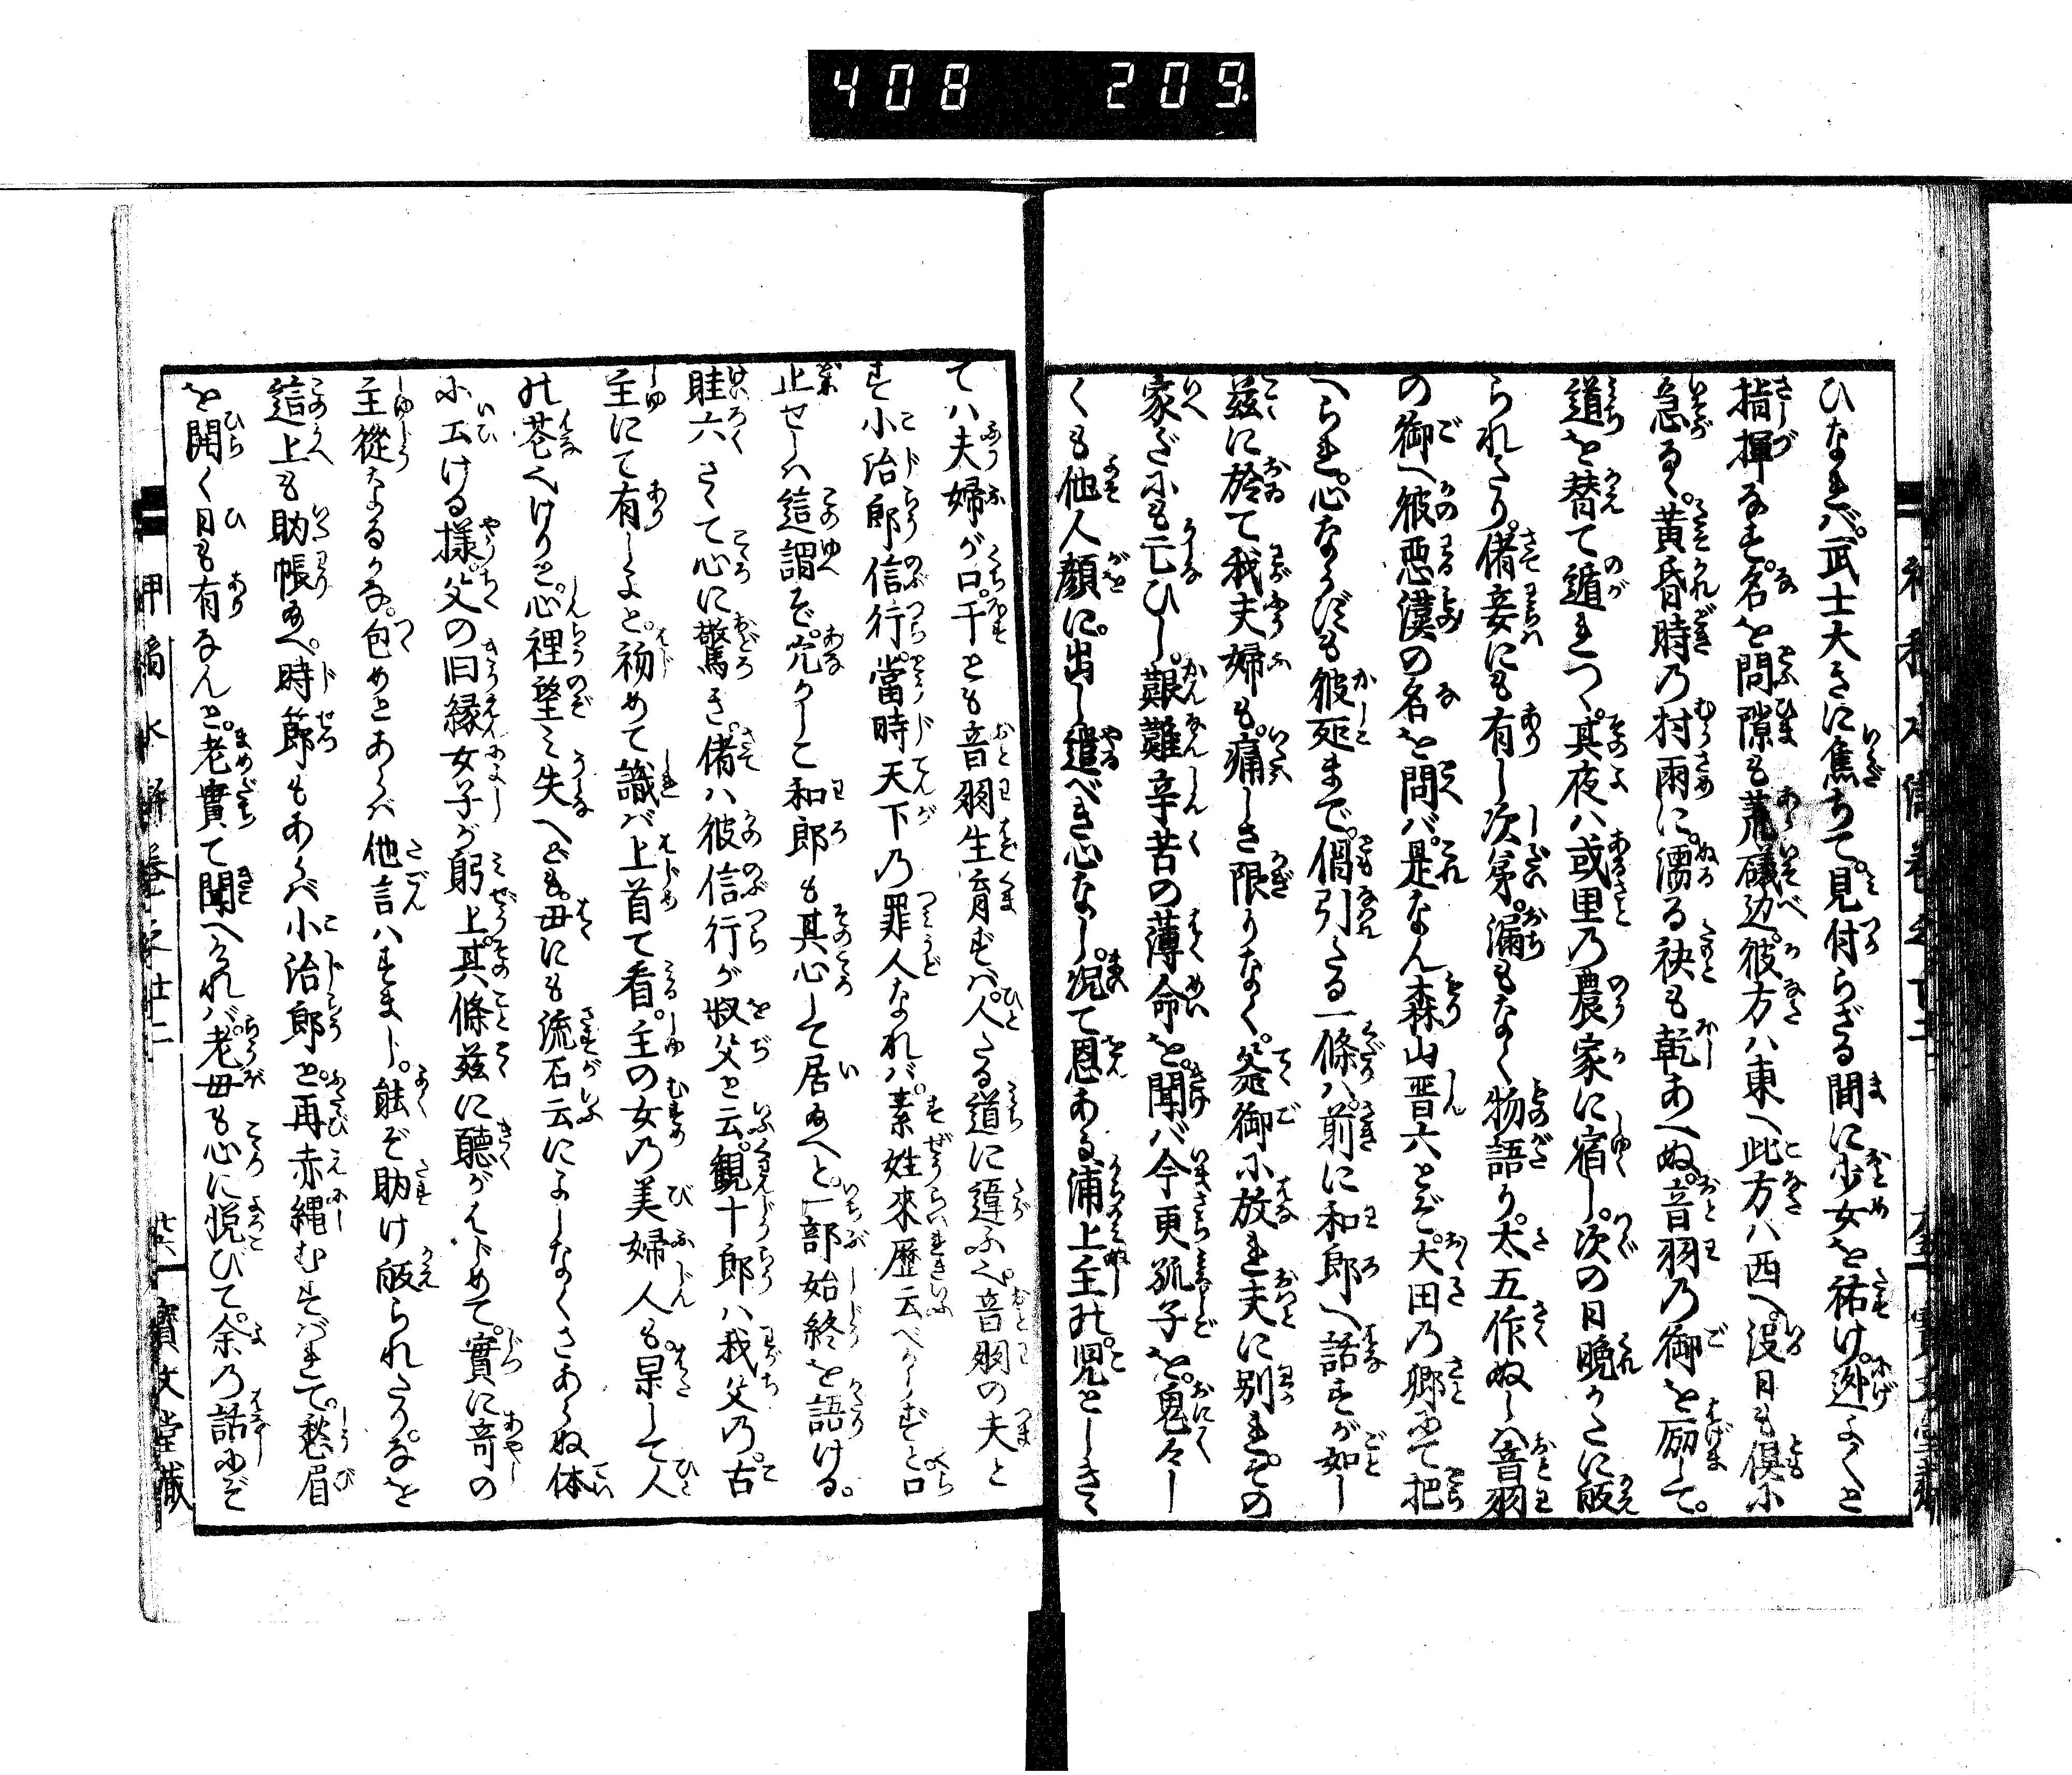 408 209
ひなれバ。武士大きに焦ちて。見付らざる間に少女を祐け。迯よくと
指揮なせ。名を問隙も荒礒辺。彼方ハ東へ此方ハ西へ。没日も倶に
急るゝ。黄昏時乃村雨に。濡る袂も乾あへぬ。音羽乃御を励して。
道を替て遁れつゝ。其夜ハ或里乃農家に宿し。次の日晩かたに皈
られたり。偖妾にも有し次第。漏もなく物語り。太五作ぬしハ音羽
の御へ彼悪漢の名を問バ。是なん森山晋六とぞ。大田乃郷にて把
へられ。心ならずも彼処まで。倡引たる一條ハ。前に和郎へ話すが如し
茲に於て我夫婦も。痛しき限りなく。爺御に放れ夫に別れ。その
家ざにも亡ひし。艱難辛苦の薄命を。聞バ今更孤子を。鬼々し
くも他人顔に。出し遣べき心なし。况て恩ある浦上主の。児としきゝ
て八夫婦が口。干とも音羽生育ずバ。人たる道に違ふべく。音羽の夫と
す小治郎信行。當時天下乃罪人なれバ。素姓来歴云べからずと口
止せしハ這謂ぞ。穴かしこ和郎も其心して居あへと。一部始終を語ける。
畦六さてハ心に驚き。偖ハ彼信行が叔父と云。観十郎ハ我父乃。古
主にて有しよと。初めて識バ上首て看。主の女乃美婦人も。果して人
の巷へけりと。心裡望ミ失へども。毌にも流石云によしなくさあらぬ体
にエける様。父の旧縁女子が躬上。其條茲に聴がはじめて。實に奇の
主從なるかな。包めとあらバ他言ハすまじ。能ぞ助け皈られたりな。を
這上も助帳あへ。時節もあらバ小治郎と。再赤縄むすバれて。愁眉
を開く日も有なんと。老實て聞へけれバ。老毌も心に悦びて。余乃話にぞ
甲 水滸 巻之廿二 寳文堂藏